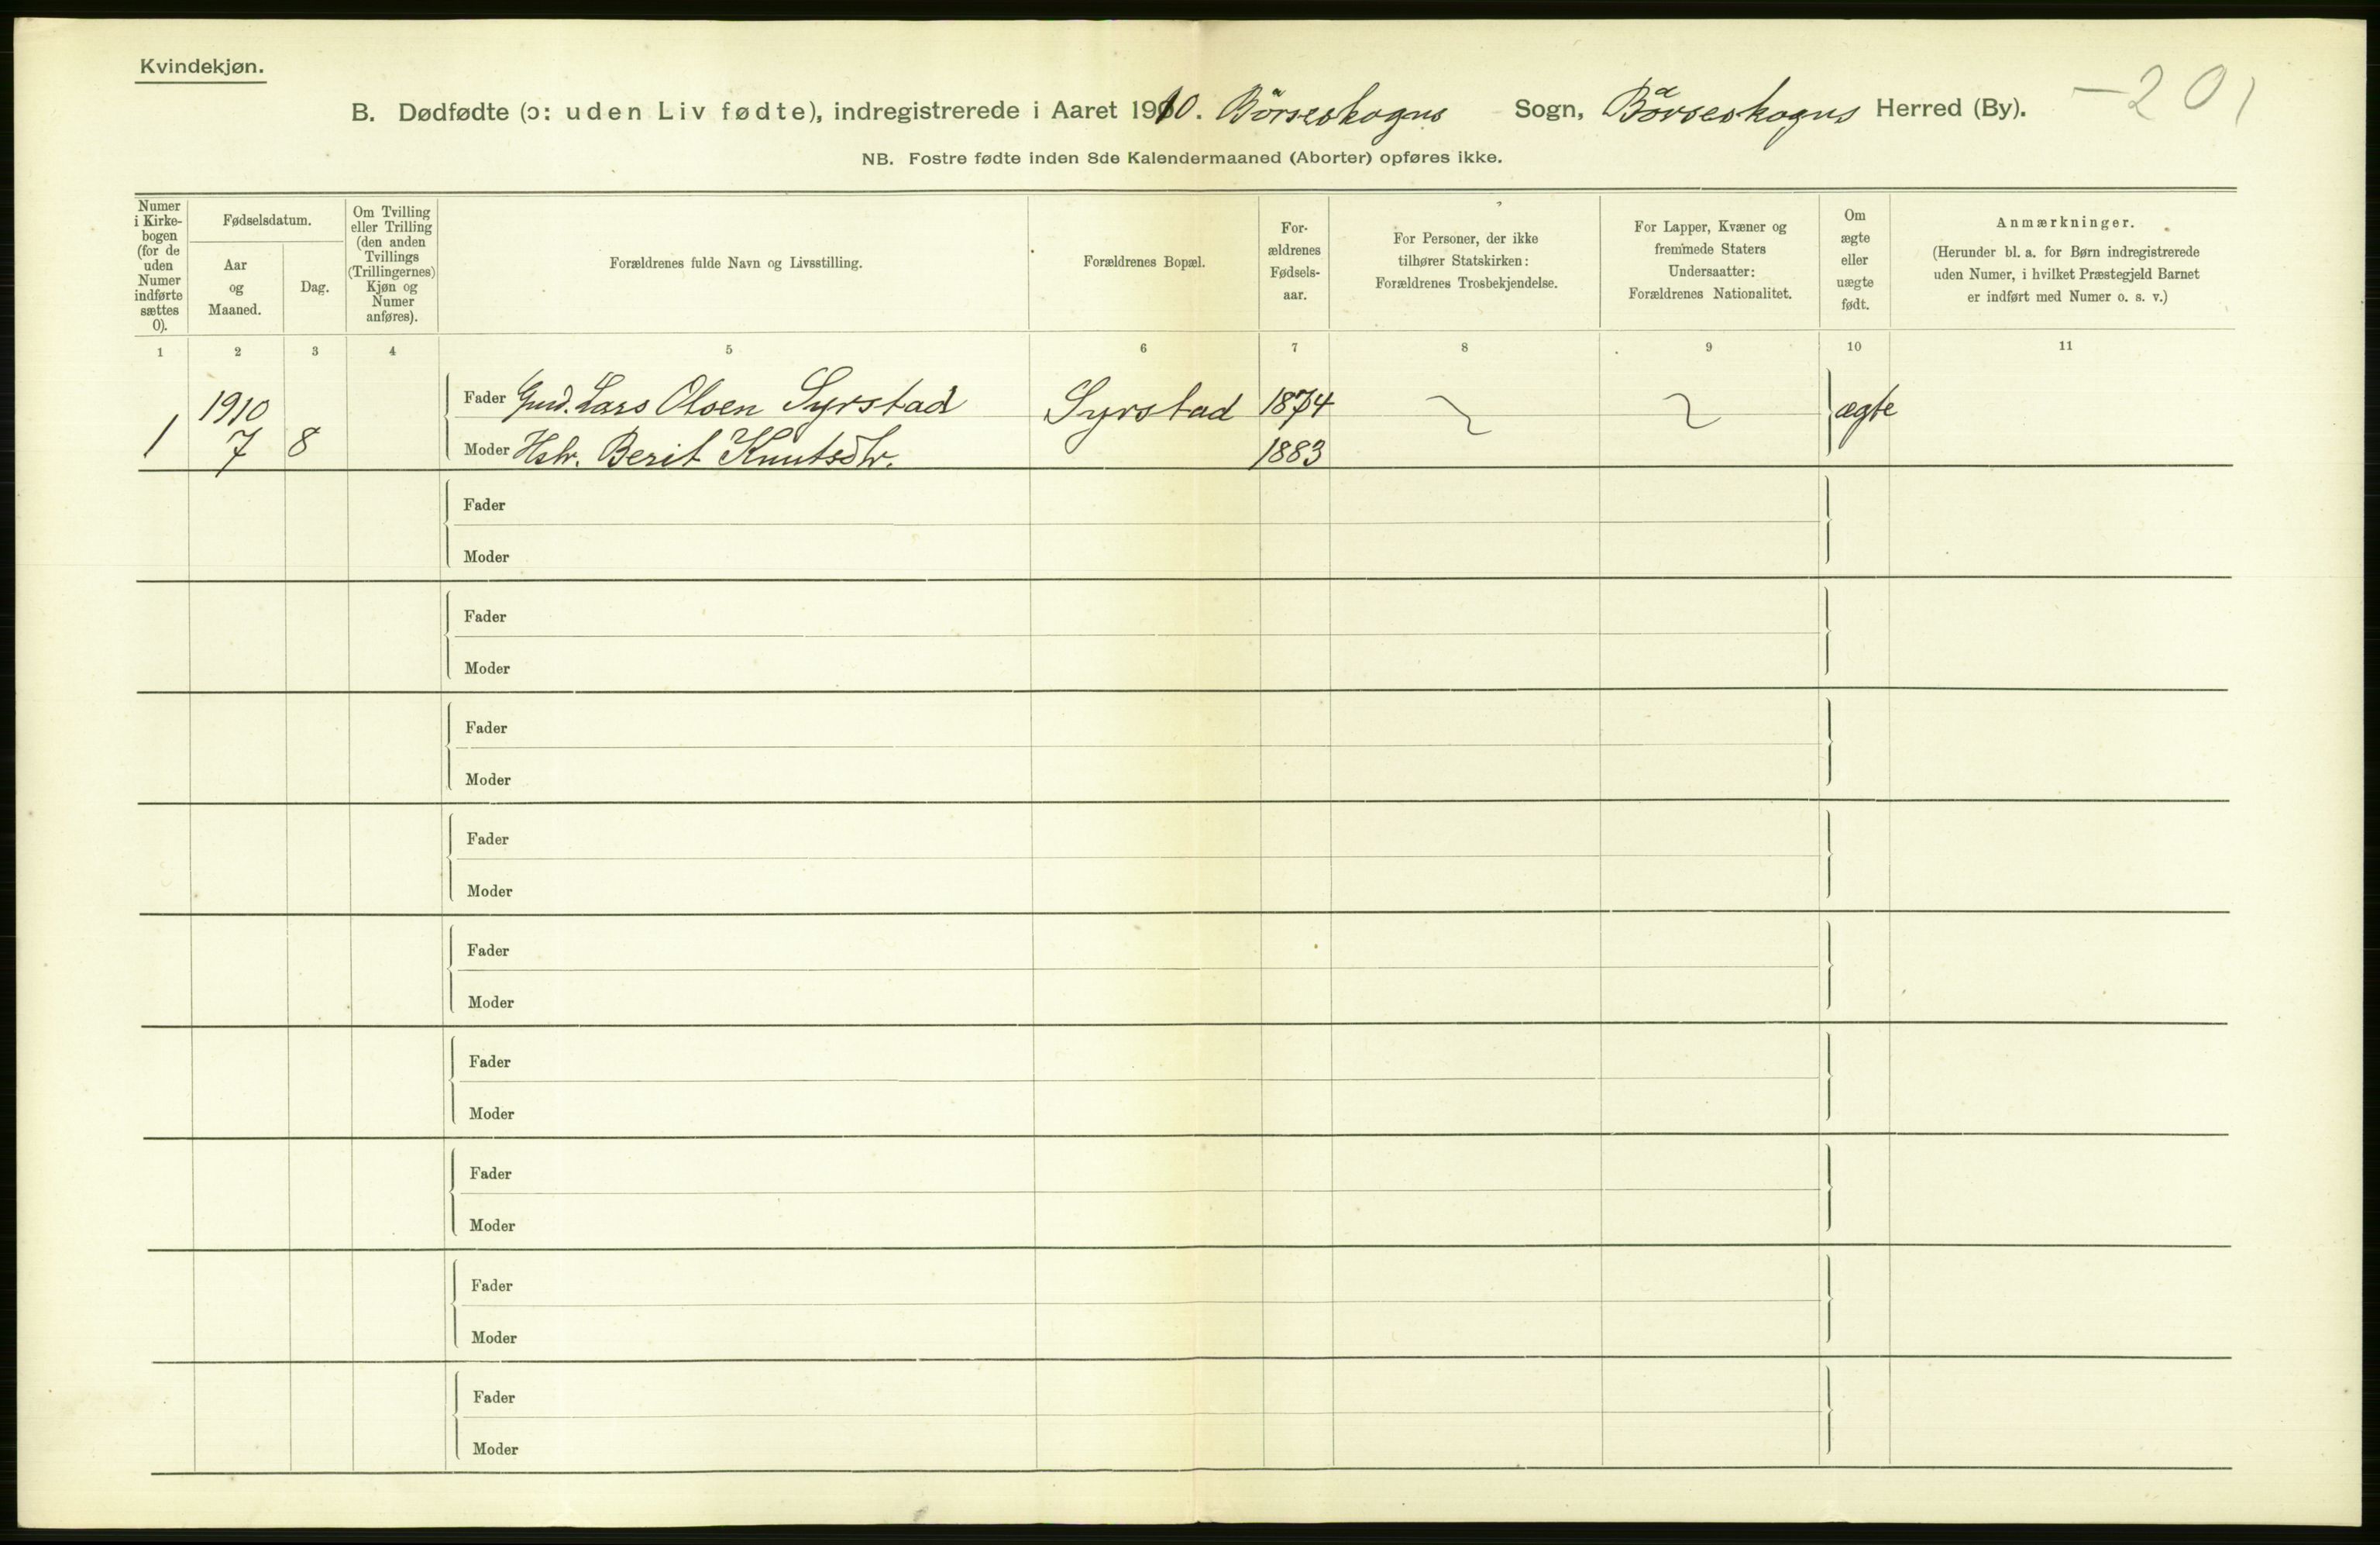 Kvindekjøn.
B. Dødfødte (ɔ: uden Liv fødte), indregistrerede i Aaret 1910. Börseskogns Sogn, Börseskogns Herred (By). -201
NB. Fostre fødte inden 8de Kalendermaaned (Aborter) opføres ikke.
Numer
i Kirke-
bogen
(for de
uden
Numer
indførte
sættes
0).
Fødselsdatum.
Aar
og
Maaned.
Dag.
Om Tvilling
eller Trilling
(den anden
Tvillings
(Trillingernes)
Kjøn og
Numer
anføres).
Forældrenes fulde Navn og Livsstilling.
Forældrenes Bopæl.
For-
ældrenes
Fødsels-
aar.
For Personer, der ikke
tilhører Statskirken:
Forældrenes Trosbekjendelse.
For Lapper, Kvæner og
fremmede Staters
Undersaatter:
Forældrenes Nationalitet.
Om
ægte
eller
uægte
født.
Anmærkninger.
(Herunder bl. a. for Børn indregistrerede
uden Numer, i hvilket Præstegjeld Barnet
er indført med Numer o. s. v.)
1 2 3 4 5 6 7 8 9 10 11
1910 Fader Gmd. Lars Olsen Syrstad Syrstad 1874 ægte
1 7 8 Moder Hstr. Berit Knutsdtr. 1883
Fader
Moder
Fader
Moder
Fader
Moder
Fader
Moder
Fader
Moder
Fader
Moder
Fader
Moder
Fader
Moder
Fader
Moder